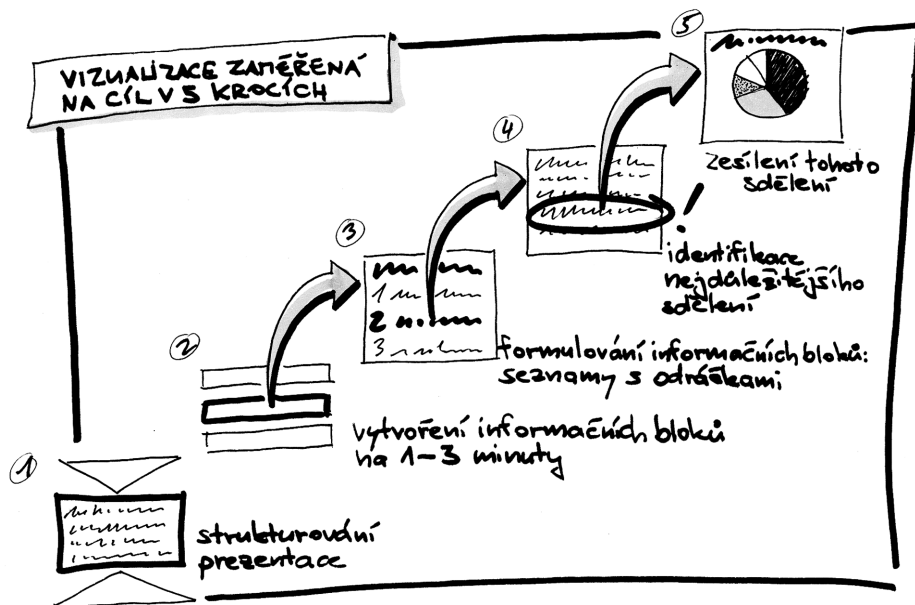 VIZUALIZACE ZAMĚŘENÁ
NA CÍL V 5 KROCÍCH
1
strukturování
prezentace
2
vytvoření informačních bloků
na 1–3 minuty
3
1
2
3
formulování informačních bloků:
seznamy s odrážkami
4
identifikace
nejdůležitějšího
sdělení
5
zesílení tohoto
sdělení
!